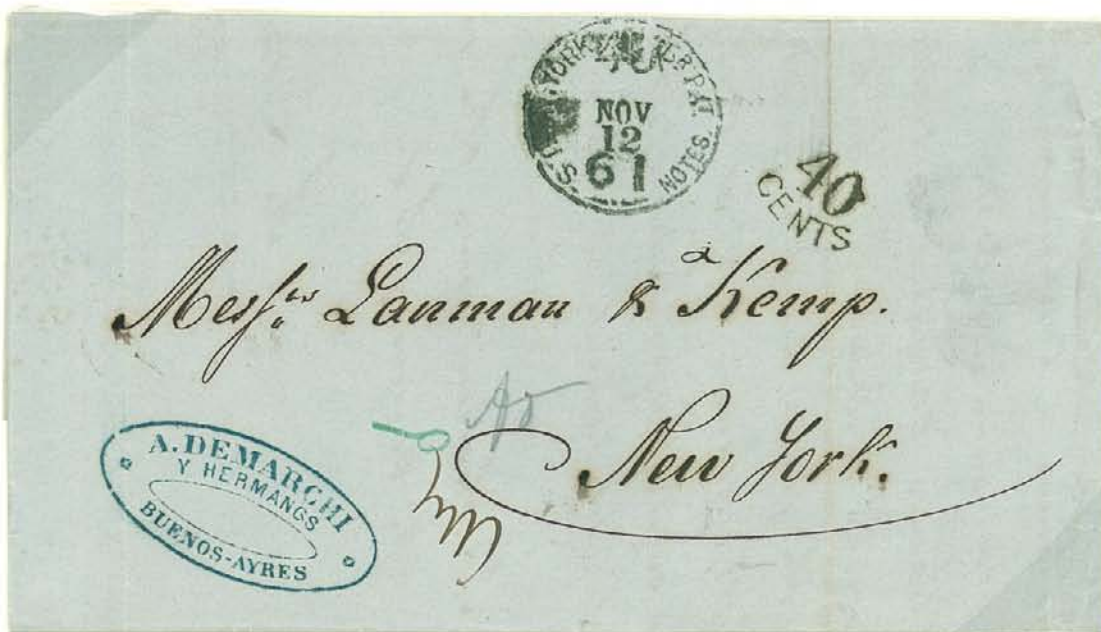 YORK
NOV
12
61
U.S. NOTES.
40
CENTS
Messrs Lanman & Kemp.
New York.
A. DEMARCHI
Y HERMANOS
BUENOS-AYRES